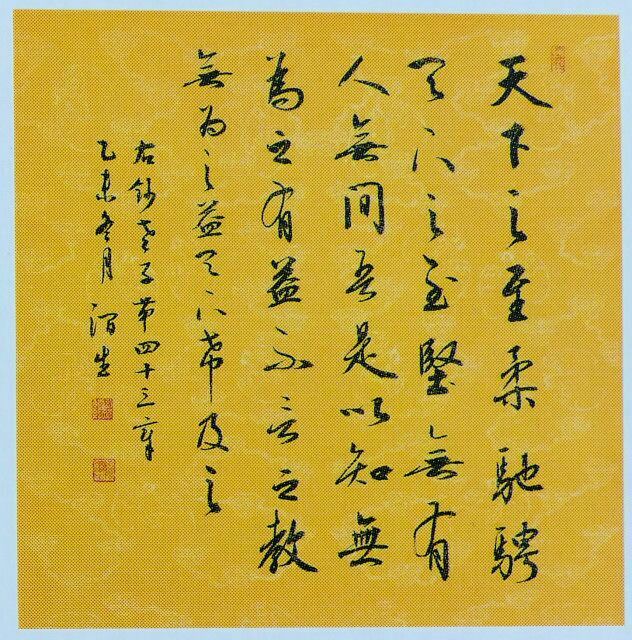 天下之至柔馳騁
天下之至堅無有
人無間吾是以知無
為之有益不言之教
無為之益天下希及之
右鈔老子第四十三章
乙未冬月 渭生